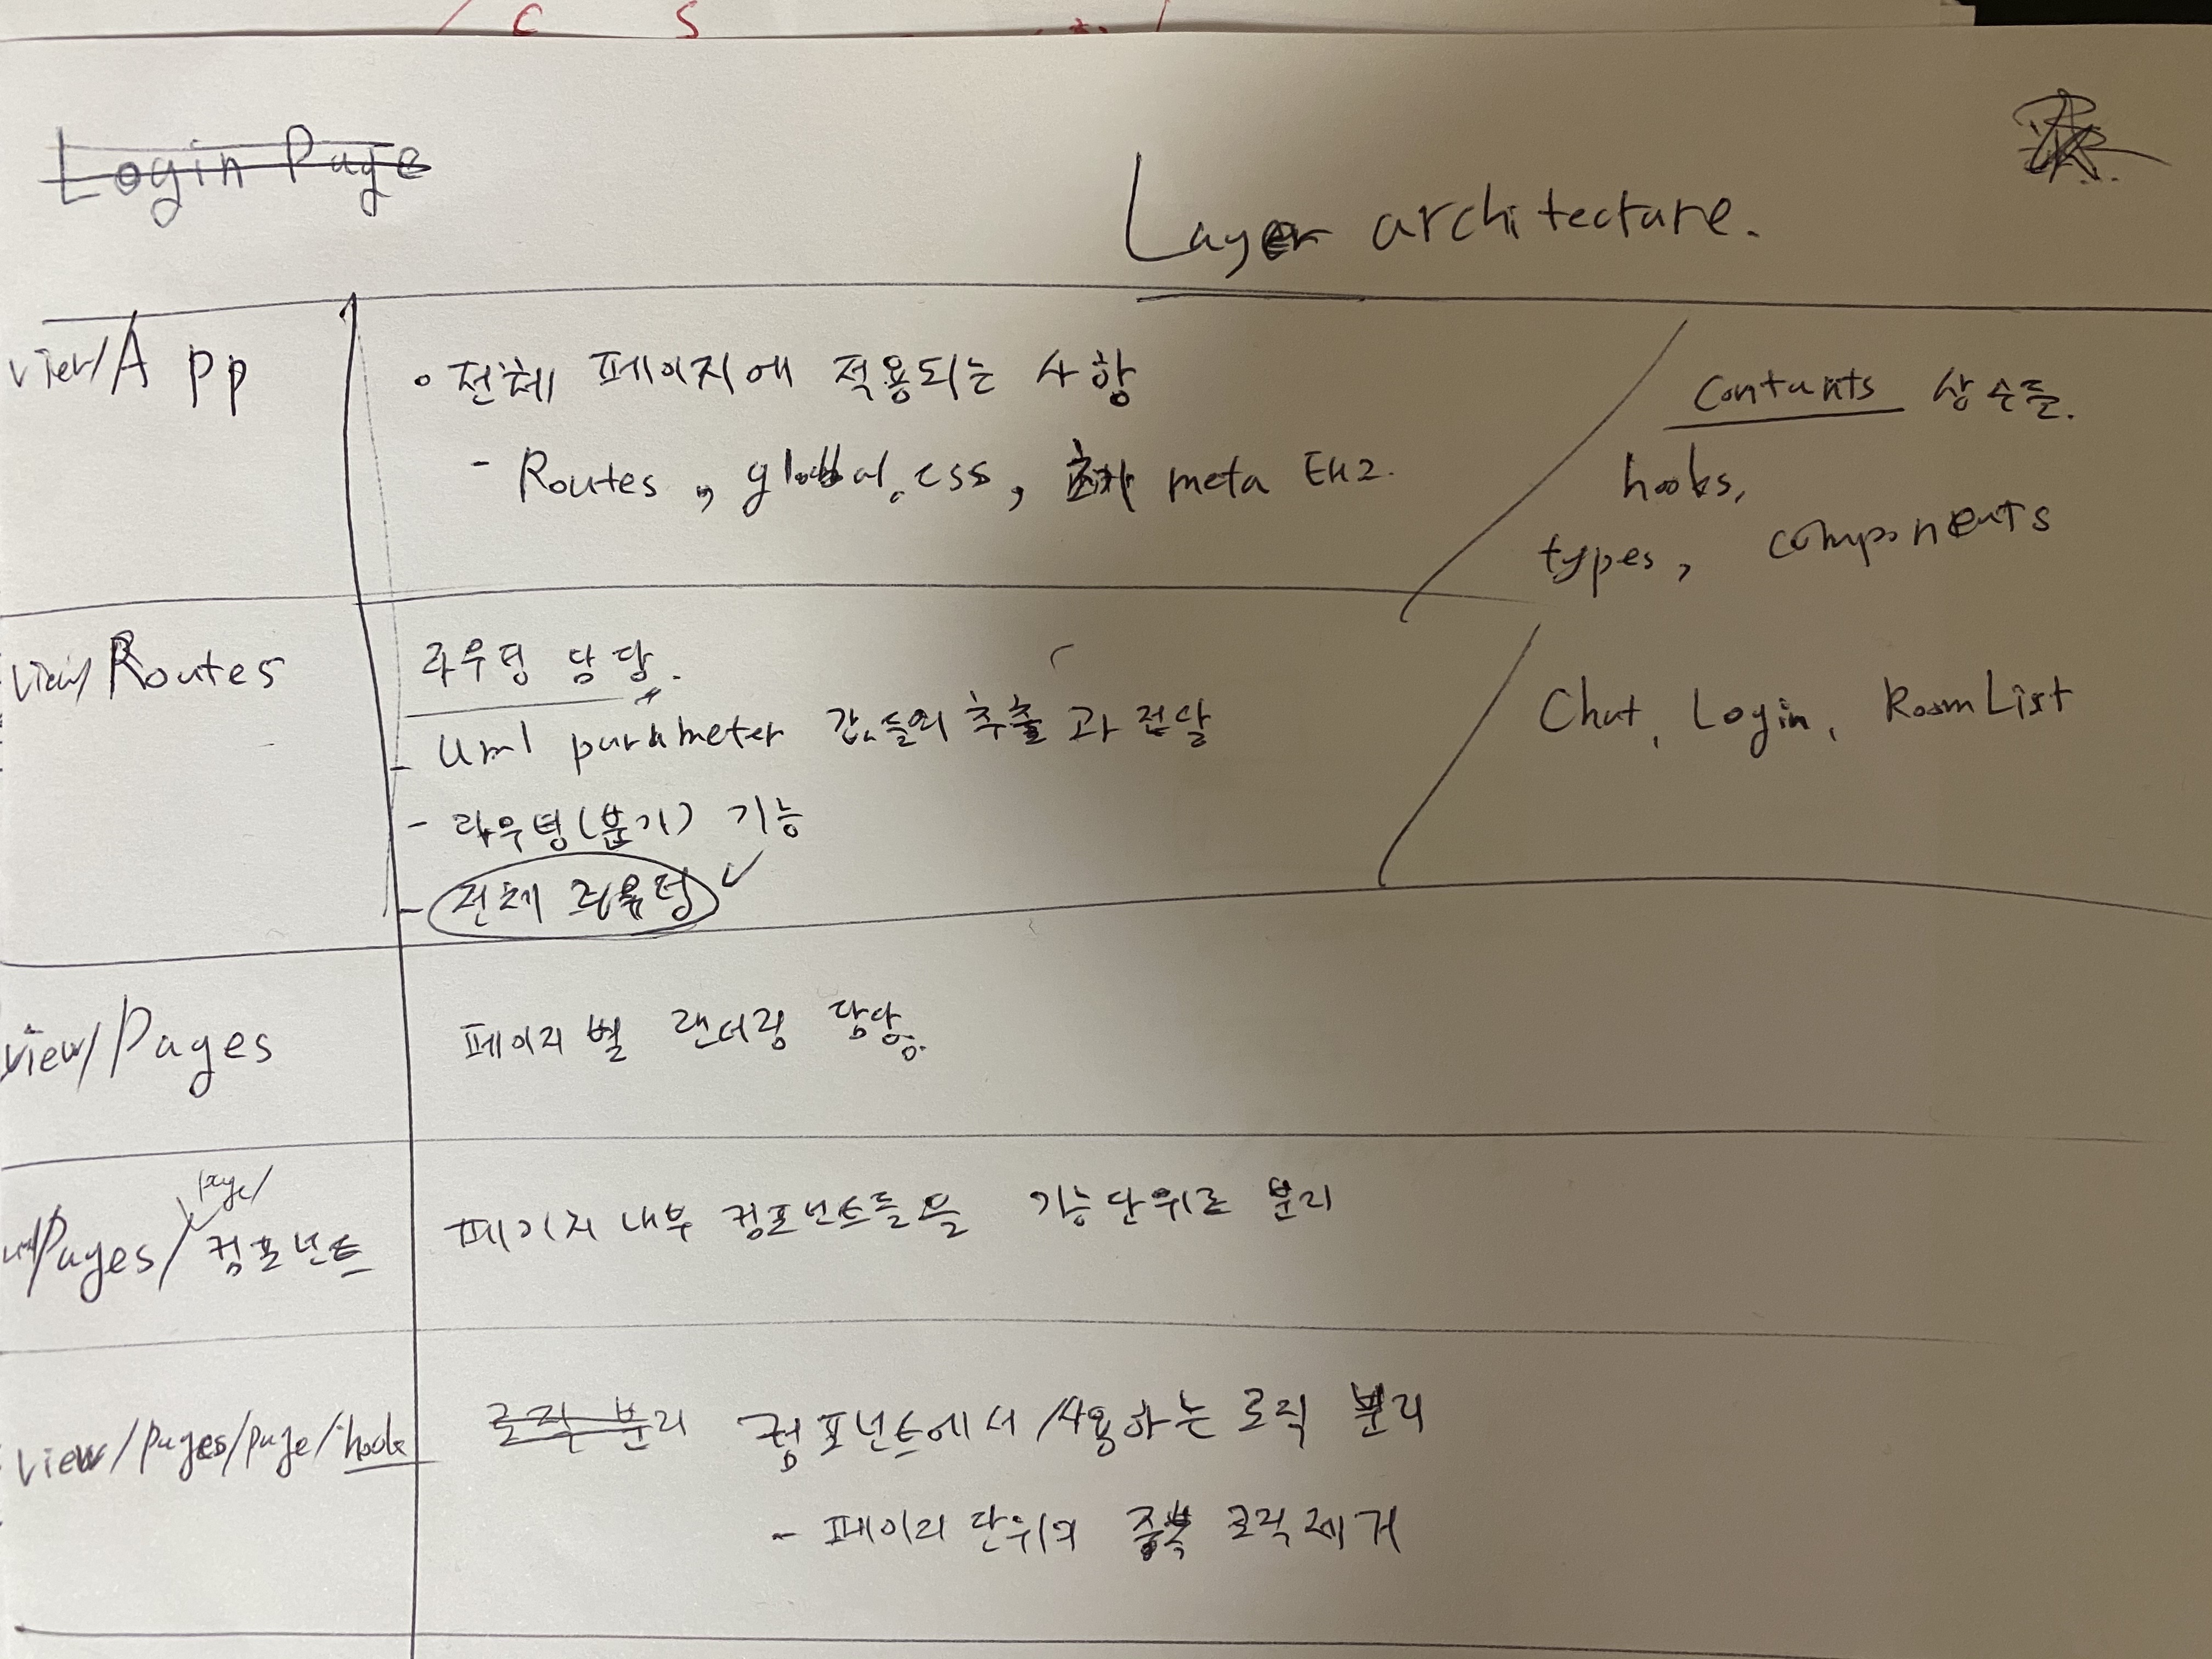 Login Page
Layer architecture.
view/App
• 전체 페이지에 적용되는 사항
- Routes, global.css, meta 태그.
Contants 상수들.
hooks,
types, components
view/Routes
라우팅 담당.
- Uml parameter 값들의 추출과 전달
- 라우팅(분기) 기능
- 전체 라우팅 ✓
Chat, Login, RoomList
view/Pages
페이지 별 랜더링 담당.
page/
/Pages/컴포넌트
페이지 내부 컴포넌트들을 기능단위로 분리
view/pages/page/hook
로직 분리 컴포넌트에서 사용하는 로직 분리
- 페이지 단위의 중복 로직 제거